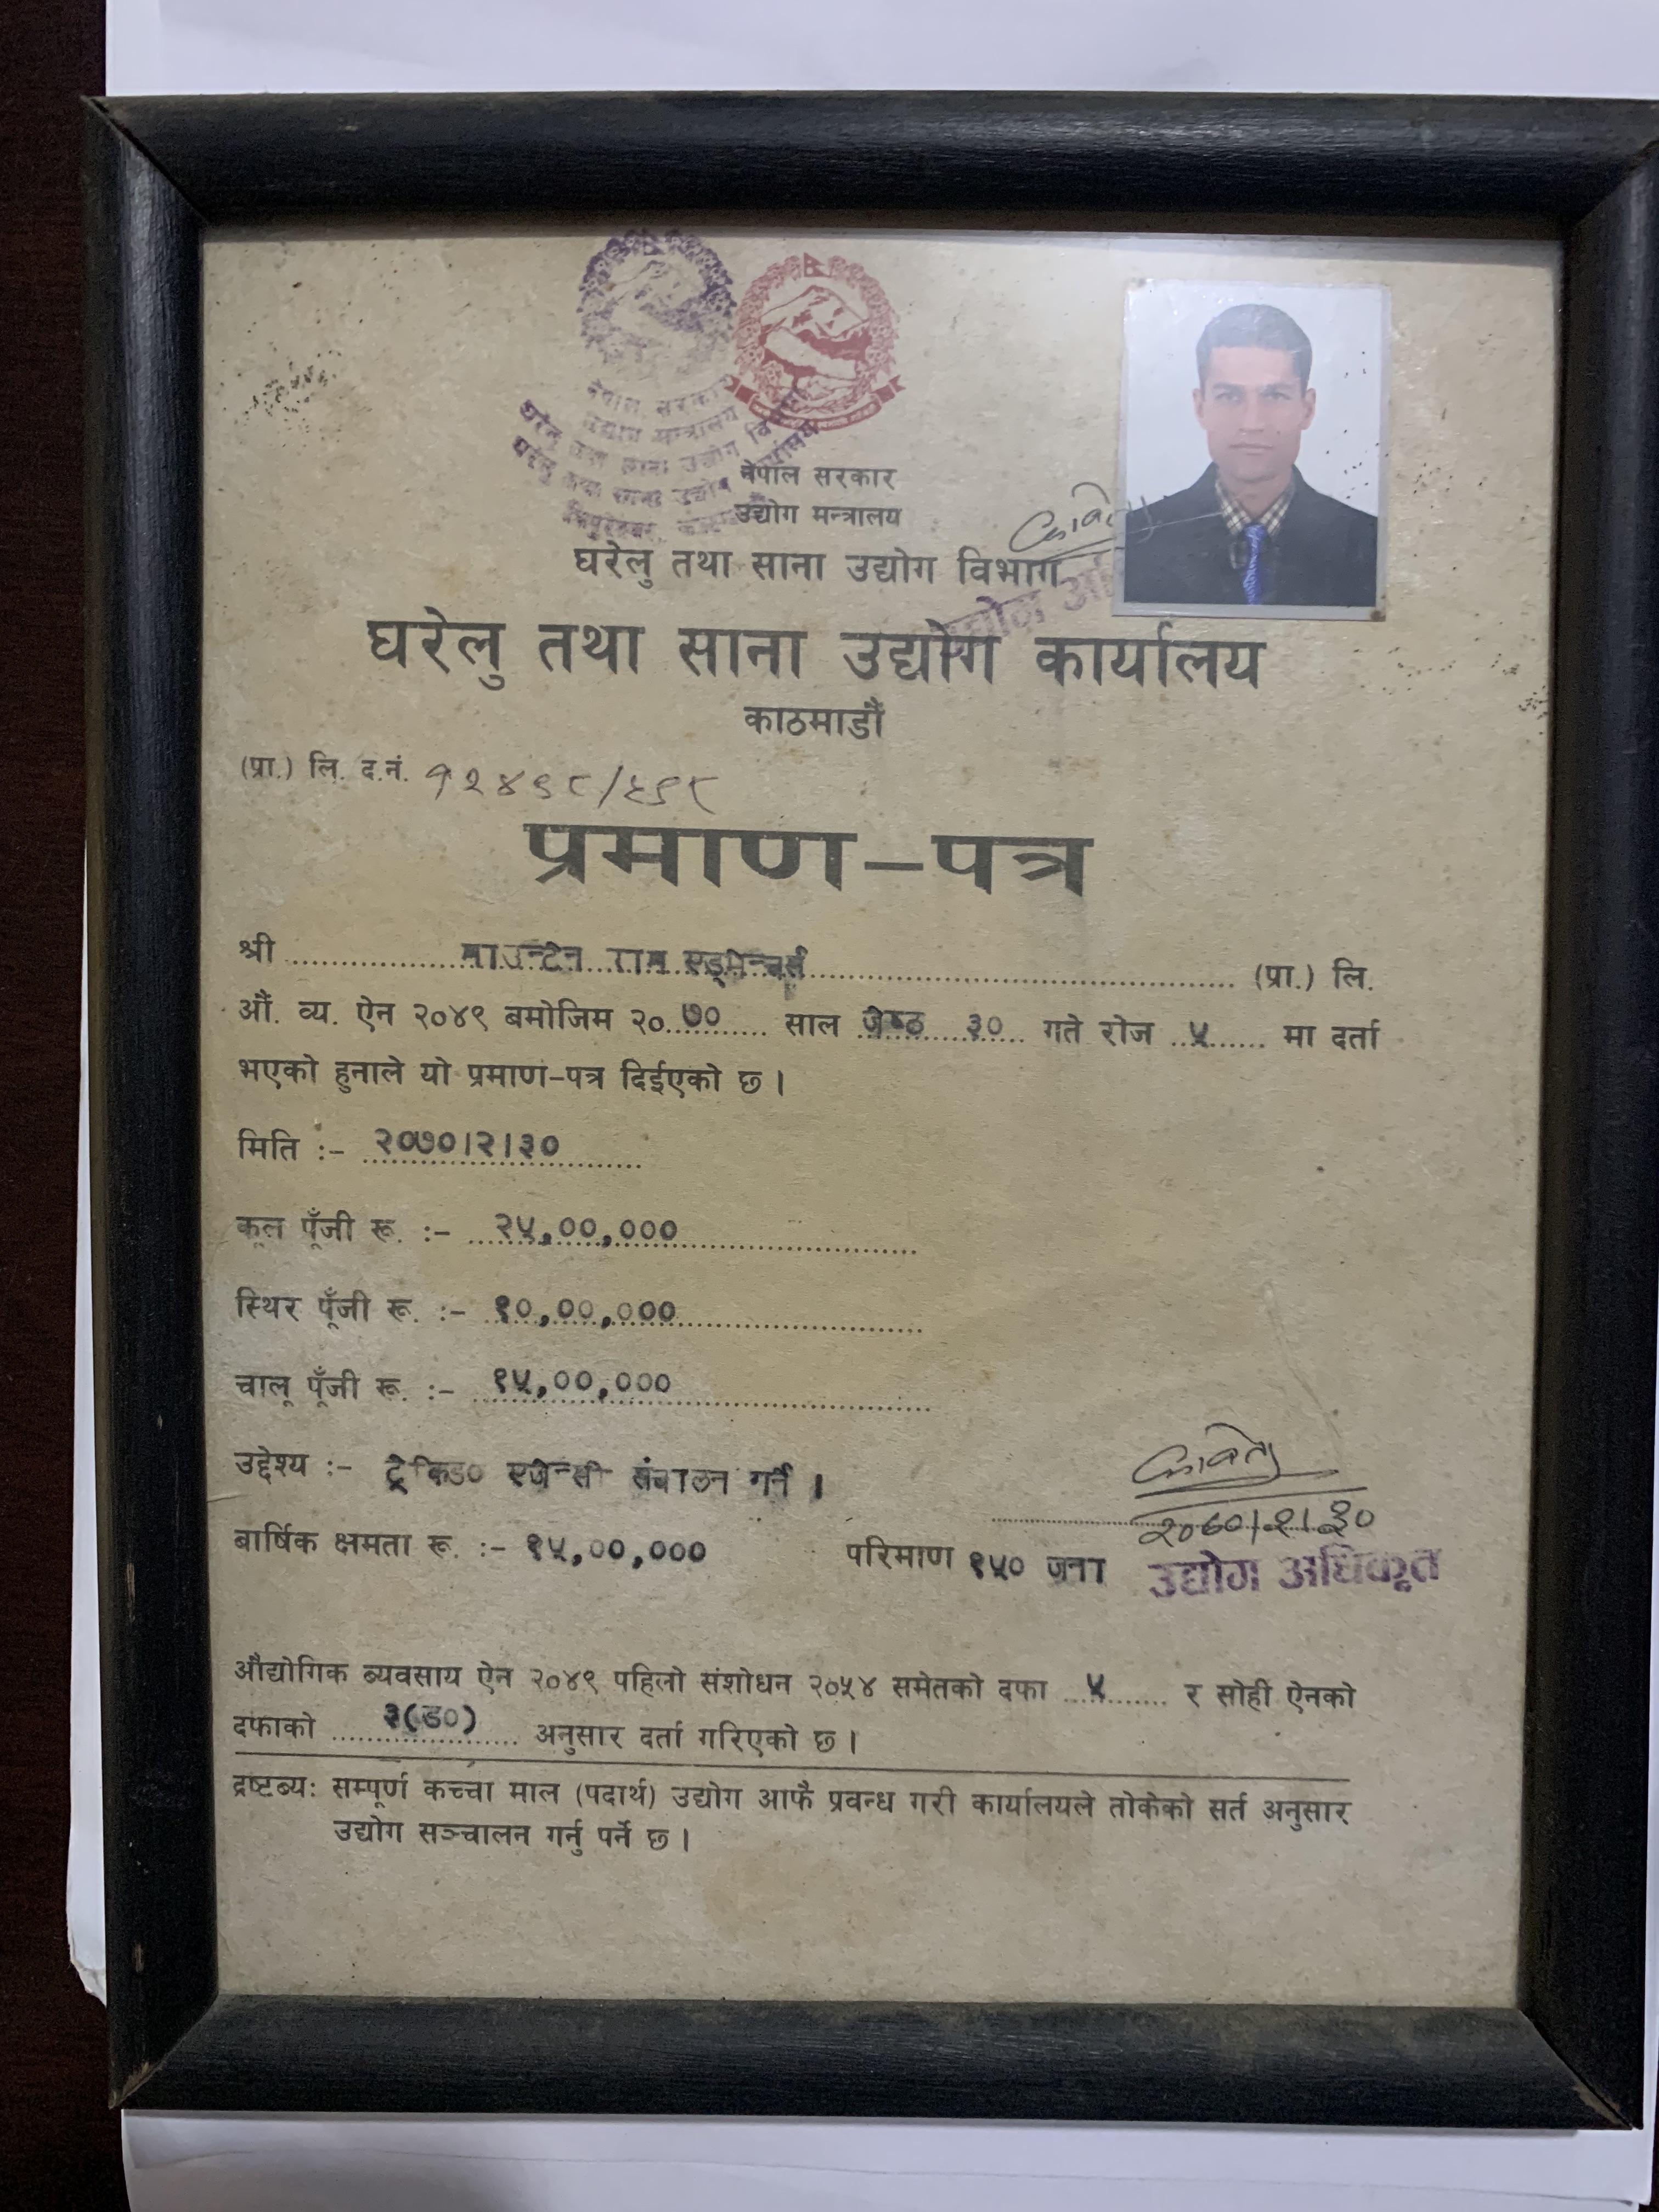 नेपाल सरकार
उद्योग मन्त्रालय
घरेलु तथा साना उद्योग विभाग
नेपाल सरकार
उद्योग मन्त्रालय
घरेलु तथा साना उद्योग विभाग
घरेलु तथा साना उद्योग कार्यालय
काठमाडौं
(प्रा.) लि. द.नं. १२४९८/६९८
प्रमाण-पत्र
श्री माउन्टेन राम एड्भेन्चर्स (प्रा.) लि.
औं. व्य. ऐन २०४९ बमोजिम २०७० साल जेष्ठ ३० गते रोज ५ मा दर्ता
भएको हुनाले यो प्रमाण-पत्र दिईएको छ ।
मिति :- २०७०।२।३०
कूल पूँजी रू. :- २५,००,०००
स्थिर पूँजी रू. :- १०,००,०००
चालू पूँजी रू. :- १५,००,०००
उद्देश्य :- ट्रेकिङ० एजेन्सी संचालन गर्ने ।
२०७०।२।३०
बार्षिक क्षमता रू. :- १५,००,००० परिमाण १५० जना उद्योग अधिकृत
औद्योगिक ब्यवसाय ऐन २०४९ पहिलो संशोधन २०५४ समेतको दफा ५ र सोही ऐनको
दफाको ३(ङ०) अनुसार दर्ता गरिएको छ ।
द्रष्टब्य: सम्पूर्ण कच्चा माल (पदार्थ) उद्योग आफै प्रवन्ध गरी कार्यालयले तोकेको सर्त अनुसार
उद्योग सञ्चालन गर्नु पर्ने छ ।